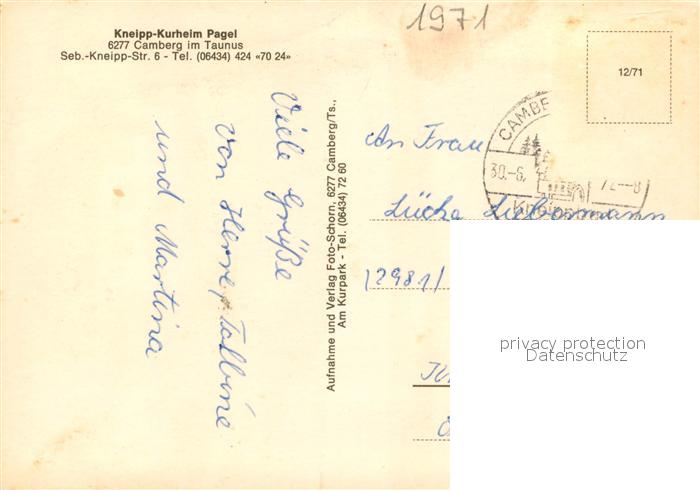 1971
Kneipp-Kurheim Pagel
6277 Camberg im Taunus
Seb.-Kneipp-Str. 6 - Tel. (06434) 424 «70 24»
12/71
Viele Grüße
von Herre, Talbine
und Martina
Aufnahme und Verlag Foto-Schorn, 6277 Camberg/Ts.,
Am Kurpark - Tel. (06434) 72 60
CAMBE
30.-6. 72.-8
Kneipp
An Frau
Lücke Liebermann
12981/
privacy protection
Datenschutz